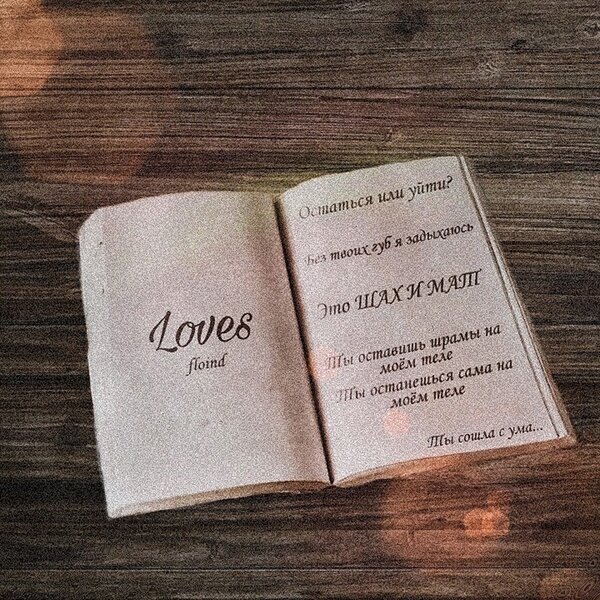 Loves
floind
Остаться или уйти?
Без твоих губ я задыхаюсь
Это ШАХ И МАТ
Ты оставишь шрамы на
моём теле
Ты останешься сама на
моём теле
Ты сошла с ума...